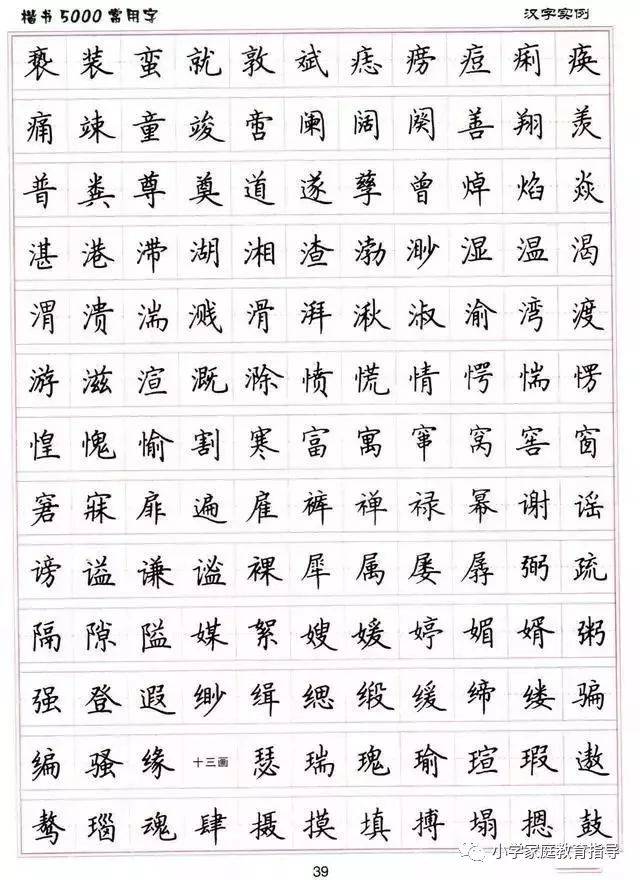 楷书5000常用字 汉字实例
亵 装 蛮 就 敦 斌 痣 痨 痘 痢 痪
痛 竦 童 竣 啻 阑 阔 阕 善 翔 羡
普 粪 尊 奠 道 遂 孳 曾 焯 焰 焱
湛 港 滞 湖 湘 渣 渤 渺 湿 温 渴
渭 溃 湍 溅 滑 湃 湫 溆 渝 湾 渡
游 滋 渲 溉 滁 愤 慌 惰 愕 惴 愣
惶 愧 愉 割 寒 富 寓 窜 窝 窖 窗
窘 寐 扉 遍 雇 裤 禅 禄 幂 谢 谣
谤 谥 谦 谧 裸 犀 属 屡 孱 弼 疏
隔 隙 隘 媒 絮 嫂 媛 婷 媚 婿 粥
强 登 遐 缈 缉 缌 缎 缓 缔 缕 骗
编 骚 缘 十三画 瑟 瑞 瑰 瑜 瑄 瑕 遨
骜 瑙 魂 肆 摄 摸 填 搏 塌 摁 鼓
39
小学家庭教育指导